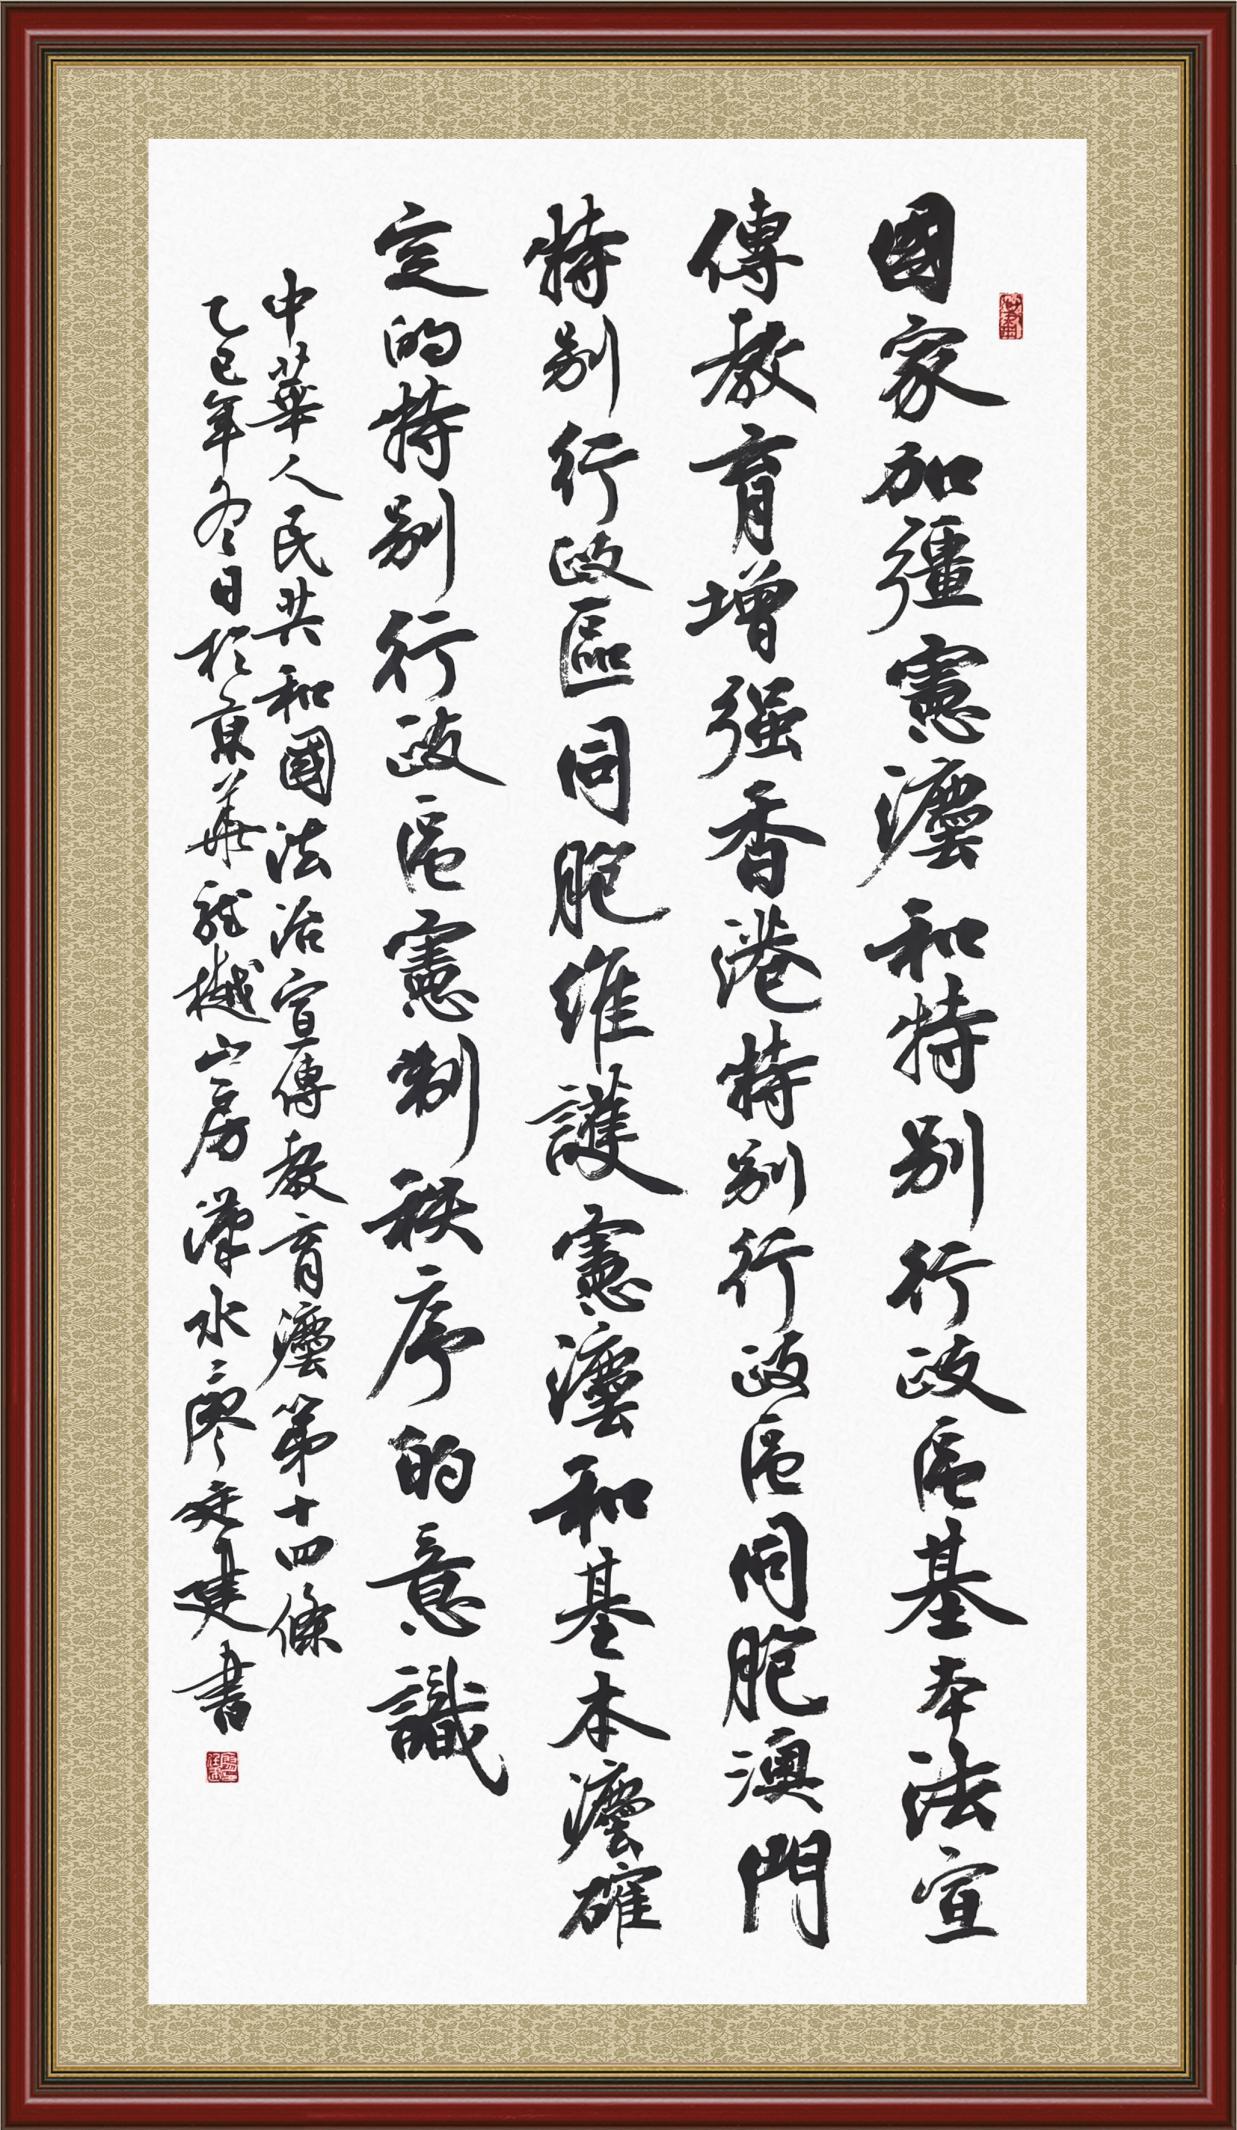 國家加彊憲灋和特别行政區基本法宣
傳教育增强香港特别行政區同胞澳門
特别行政區同胞維護憲灋和基本灋確
定的特别行政區憲制秩序的意識
中華人民共和國法治宣傳教育灋第十四條
乙巳年冬日於京華龍樾山房漢水廖文建書